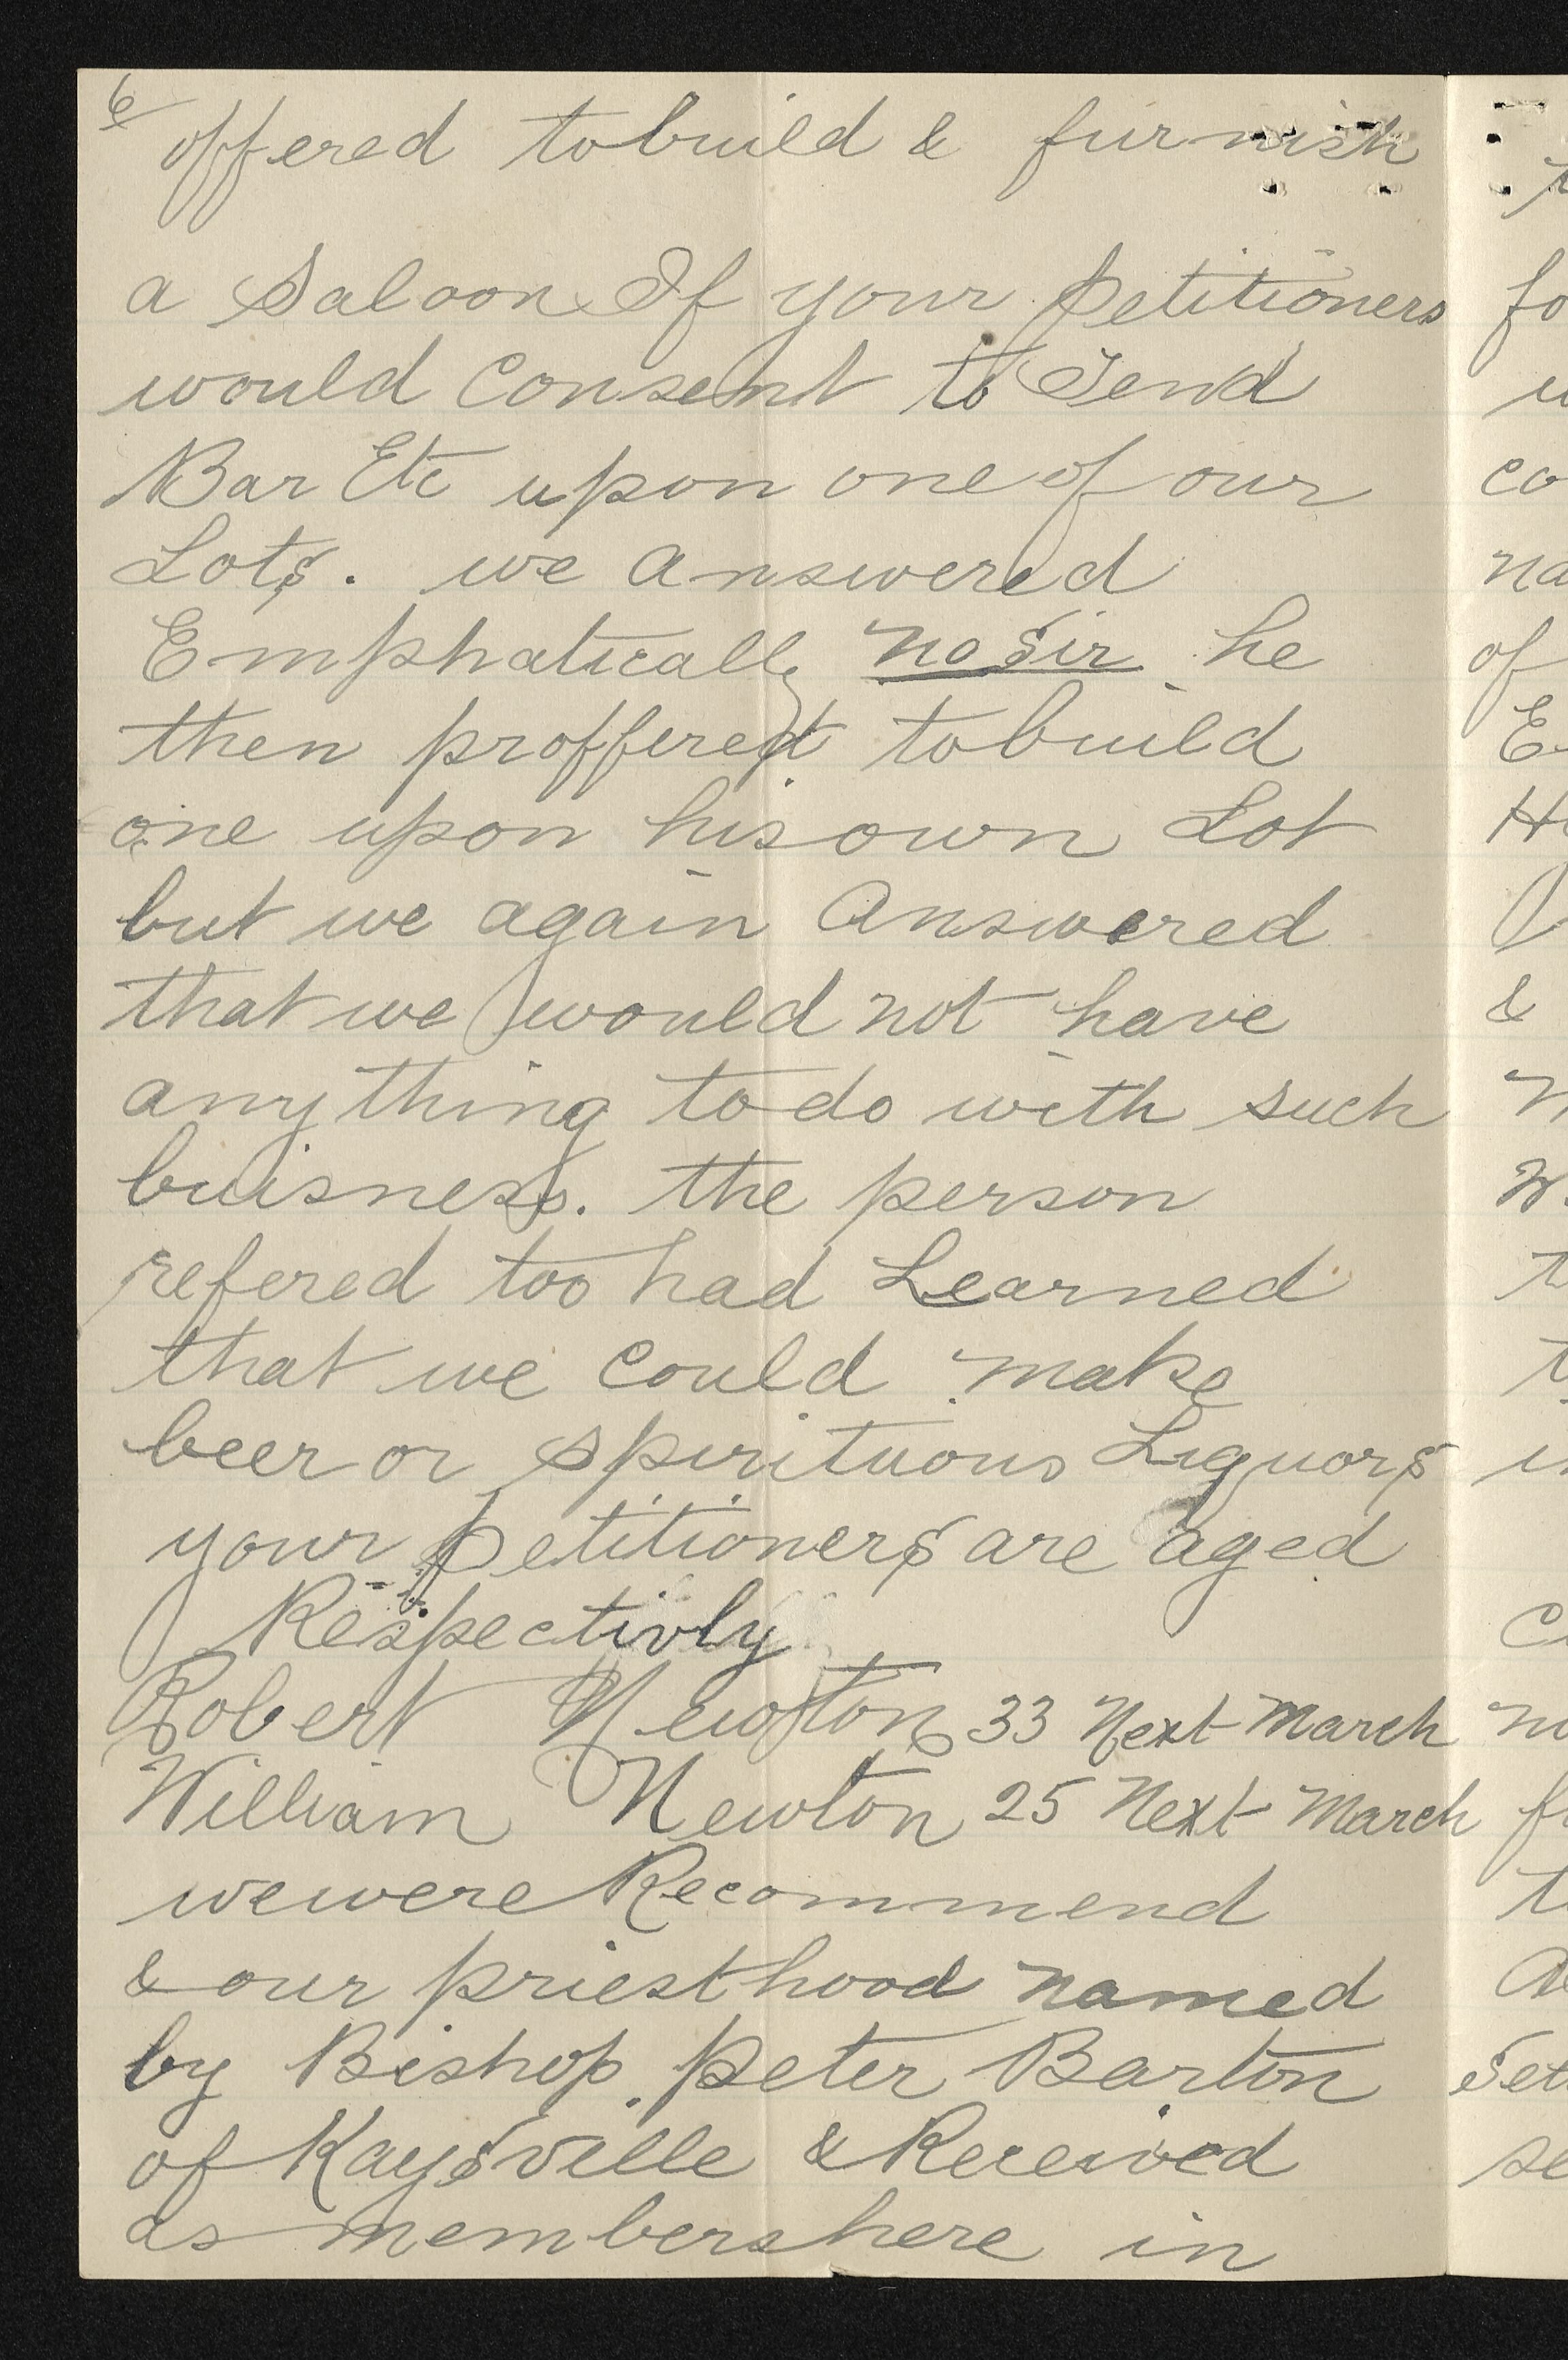 6
offered to build & furnish
a Saloon If your petitioners
would consent to Tend
Bar Etc upon one of our
Lots. we answered
Emphatically no Sir he
then proffered to build
one upon his own Lot
but we again answered
that we would not have
anything to do with such
buisness. the person
refered too had Learned
that we could make
beer or spirituous Liquors
your petitioners are aged
Respectivly
Robert Newton 33 Next March
William Newton 25 Next March
we were Recommend
& our priesthood named
by Bishop peter Barton
of Kaysville & Received
as members here in
fo
co
na
of
&